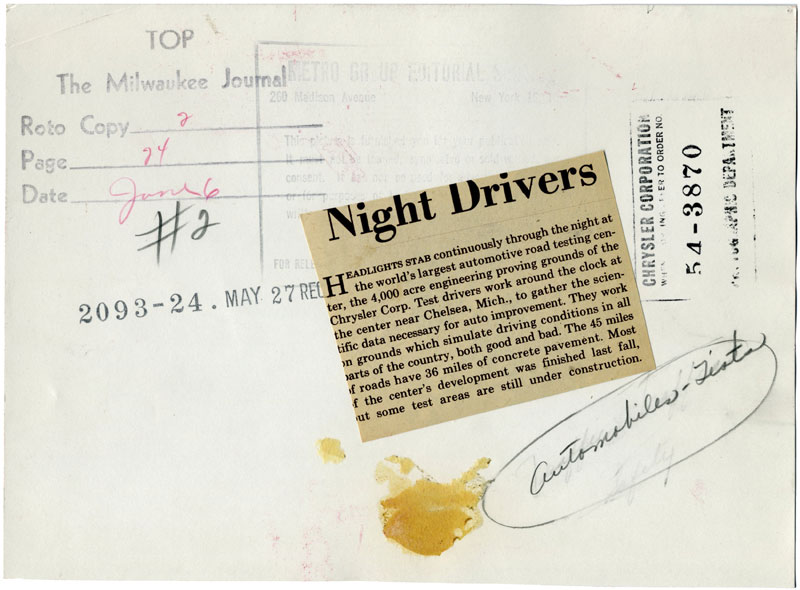 TOP
The Milwaukee Journal
Roto Copy 2
Page 24
Date June 6
#2
METRO GROUP EDITORIAL
260 Madison Avenue New York 16
FOR REL
2093-24. MAY 27 REC
Night Drivers
HEADLIGHTS STAB continuously through the night at
the world's largest automotive road testing cen-
ter, the 4,000 acre engineering proving grounds of the
Chrysler Corp. Test drivers work around the clock at
the center near Chelsea, Mich., to gather the scien-
tific data necessary for auto improvement. They work
on grounds which simulate driving conditions in all
parts of the country, both good and bad. The 45 miles
of roads have 36 miles of concrete pavement. Most
of the center's development was finished last fall,
but some test areas are still under construction.
CHRYSLER CORPORATION
REFER TO ORDER NO.
54-3870
DEPARTMENT
Automobiles-Tests
Safety